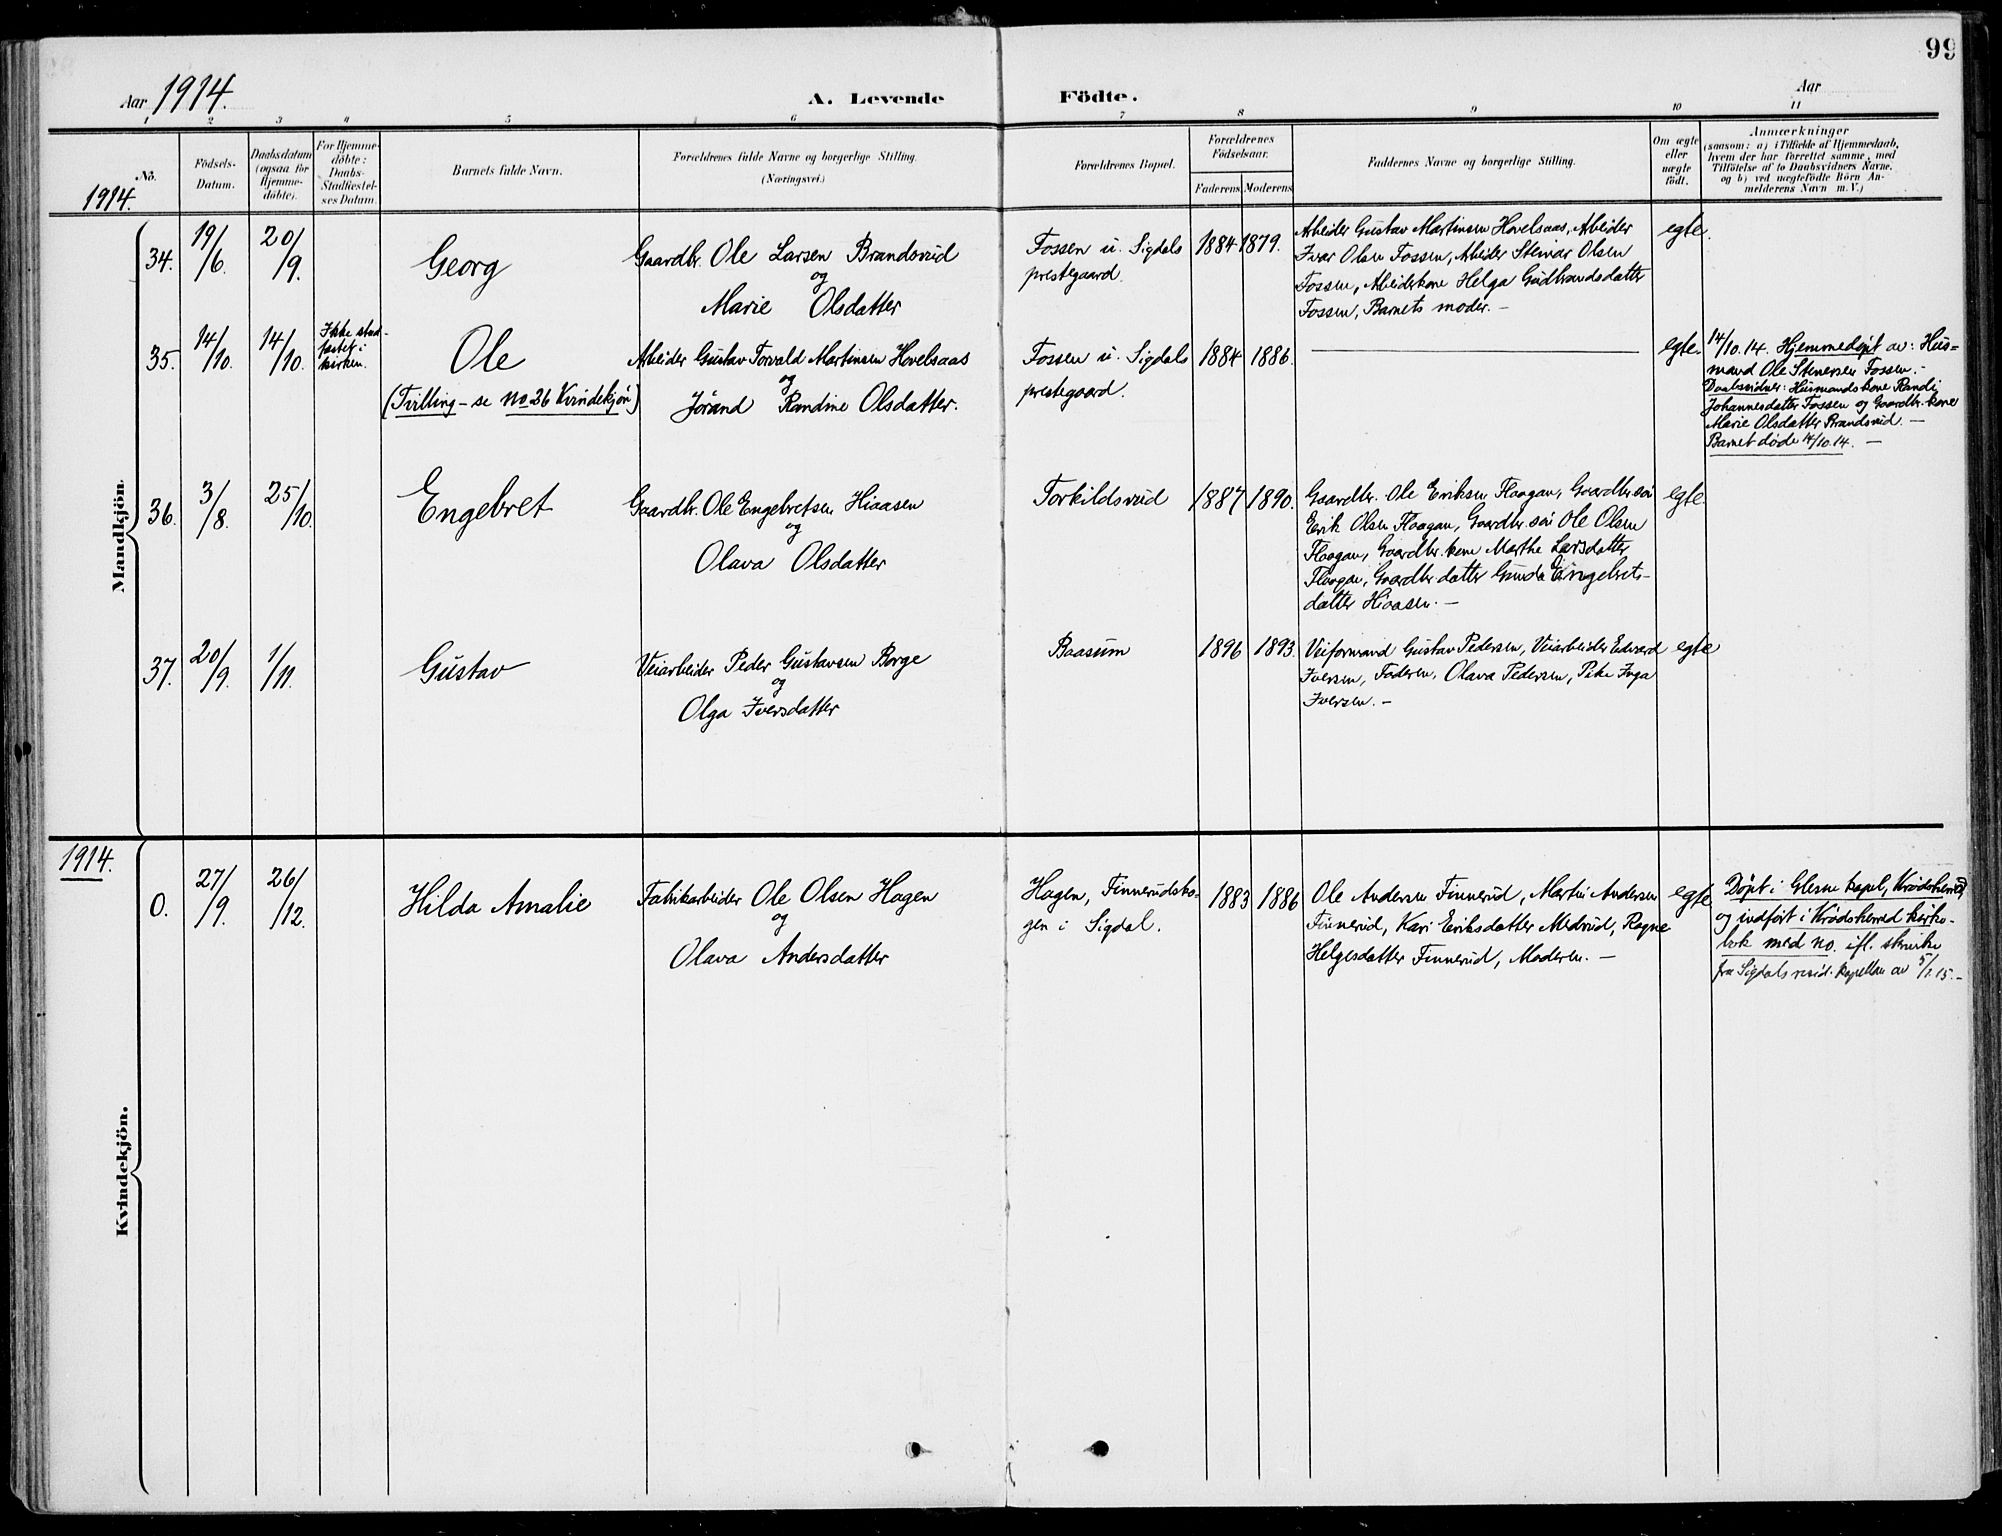 99
Aar 1914.
A. Levende Födte.
Aar
1 2 3 4 5 6 7 8 9 10 11
No.
Födsels-
Datum.
Daabsdatum
(ogsaa for
Hjemme-
döbte).
For Hjemme-
döbte:
Daabs-
Stadfæstel-
ses Datum.
Barnets fulde Navn.
Forældrenes fulde Navne og borgerlige Stilling.
(Næringsvei.)
Forældrenes Bopæl.
Forældrenes
Födselsaar.
Faderens Moderens
Faddernes Navne og borgerlige Stilling.
Om ægte
eller
uægte
födt.
Anmærkninger
(saasom: a) i Tilfælde af Hjemmedaab,
hvem der har forrettet samme, med
Tilföielse af to Daabsvidners Navne,
og b) ved uægtefödte Börn An-
melderens Navn m. V.)
1914.
Mandkjön.
34.
19/6.
20/9.
Georg
Gaardbr. Ole Larsen Brandsrud
og
Marie Olsdatter
Fossen u. Sigdals
prestegaard.
1884 1879.
Arbeider Gustav Martinsen Hovelsaas, Arbeider
Ivar Olsen Fossen, Arbeider Steinar Olsen
Fossen, Arbeiderkone Helga Gudbrandsdatter
Fossen, Barnets moder. –
egte.
35.
14/10.
14/10.
Ikke stad-
festet i
kirken.
Ole
(Tvilling – se no 26 Kvindekjøn)
Arbeider Gustav Torvald Martinsen Hovelsaas
og
Jørand Randine Olsdatter.
Fossen u. Sigdals
prestegaard.
1884 1886.
egte.
14/10.14. Hjemmedøpt av: Hus-
mand Ole Stenersen Fossen. –
Daabsvidner: Husmandskone Randi
Johannesdatter Fossen og Gaardbr.kone
Marie Olsdatter Brandsrud. –
Barnet døde 14/10.14. –
36.
3/8.
25/10.
Engebret
Gaardbr. Ole Engebretsen Hiaasen
og
Olava Olsdatter
Torkildsrud
1887 1890.
Gaardbr. Ole Eriksen Flaagan, Gaardbr.søn
Erik Olsen Flaagan, Gaardbr.søn Ole Olsen
Flaagan, Gaardbr.kone Marthe Larsdatter
Flaagan, Gaardbr.datter Gunda Engebrets-
datter Hiaasen. –
egte
37.
20/9.
1/11.
Gustav
Veiarbeider Peder Gustavsen Borge
og
Olga Iversdatter
Baasum
1896 1893.
Veiformand Gustav Pedersen, Veiarbeider Edvard
Iversen, Faderen, Olava Pedersen, Pike Inga
Iversen. –
egte
1914.
Kvindekjön.
0.
27/9.
26/12.
Hilda Amalie
Fabrikarbeider Ole Olsen Hagen
og
Olava Andersdatter
Hagen, Finnerudsko-
gen i Sigdal.
1883 1886
Ole Andersen Finnerud, Martin Andersen
Finnerud, Kari Eriksdatter Medrud, Ragne
Helgesdatter Finnerud, Moderen. –
egte
Døpt i Glesne kapel, Krødsherred
og indført i Krødsherred kirke-
bok med no. ifl. skrivelse
fra Sigdals resid. kapellan av 5/1.15. –